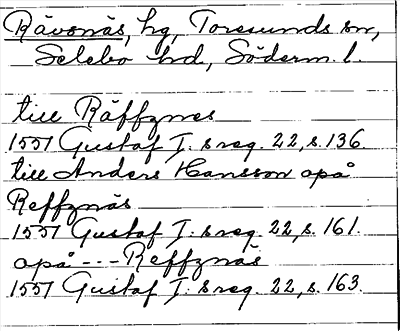 Rävsnäs, hg, Toresunds sn,
Selebo hd, Söderm. l.
till Räffznes
1551 Gustaf I:s reg. 22, s. 136.
till Anders Hansson opå
Reffznäs
1551 Gustaf I:s reg. 22, s. 161.
opå --- Reffznäs
1551 Gustaf I:s reg. 22, s. 163.